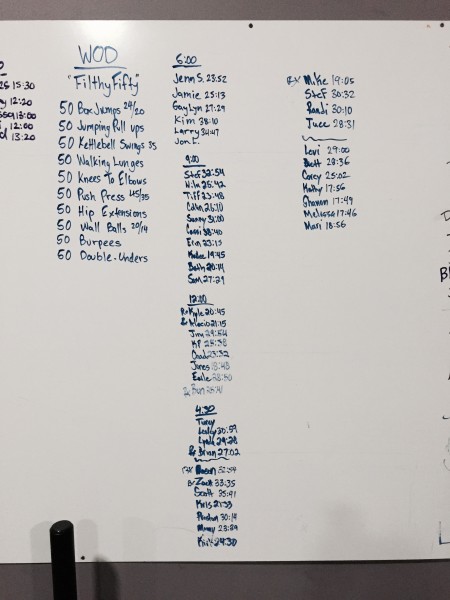 25 15:30
12:20
13:00
12:00
13:20
WOD
"Filthy Fifty"
50 Box Jumps 24/20
50 Jumping Pull ups
50 Kettlebell Swings 35
50 Walking Lunges
50 Knees To Elbows
50 Push Press 45/35
50 Hip Extensions
50 Wall Balls 20/14
50 Burpees
50 Double-Unders
Jenn S. 23:52
Jamie 25:13
GayLyn 27:29
Kim 38:10
Larry 34:47
Jon E.
9:00
Stef 32:54
25:42
Tiff 23:48
26:10
Sunny 31:00
38:40
Erin 23:15
19:45
Beth 20:14
Sam 27:29
12:00
Rx Kyle 20:45
21:15
Jim 29:54
KP 25:38
Chad 23:32
James 18:48
28:50
4:30
Lesley 30:59
Lyala 29:28
Brian 27:02
Rx
Zach 33:35
Scott 35:41
Kris 21:33
30:14
23:39
Kirk 24:30
Rx Mike 19:05
Stef 30:32
Randi 30:10
28:31
Levi 29:00
Brett 28:36
Corey 25:02
Kathy 17:56
Shannon 17:49
Melissa 17:46
Mari 18:56